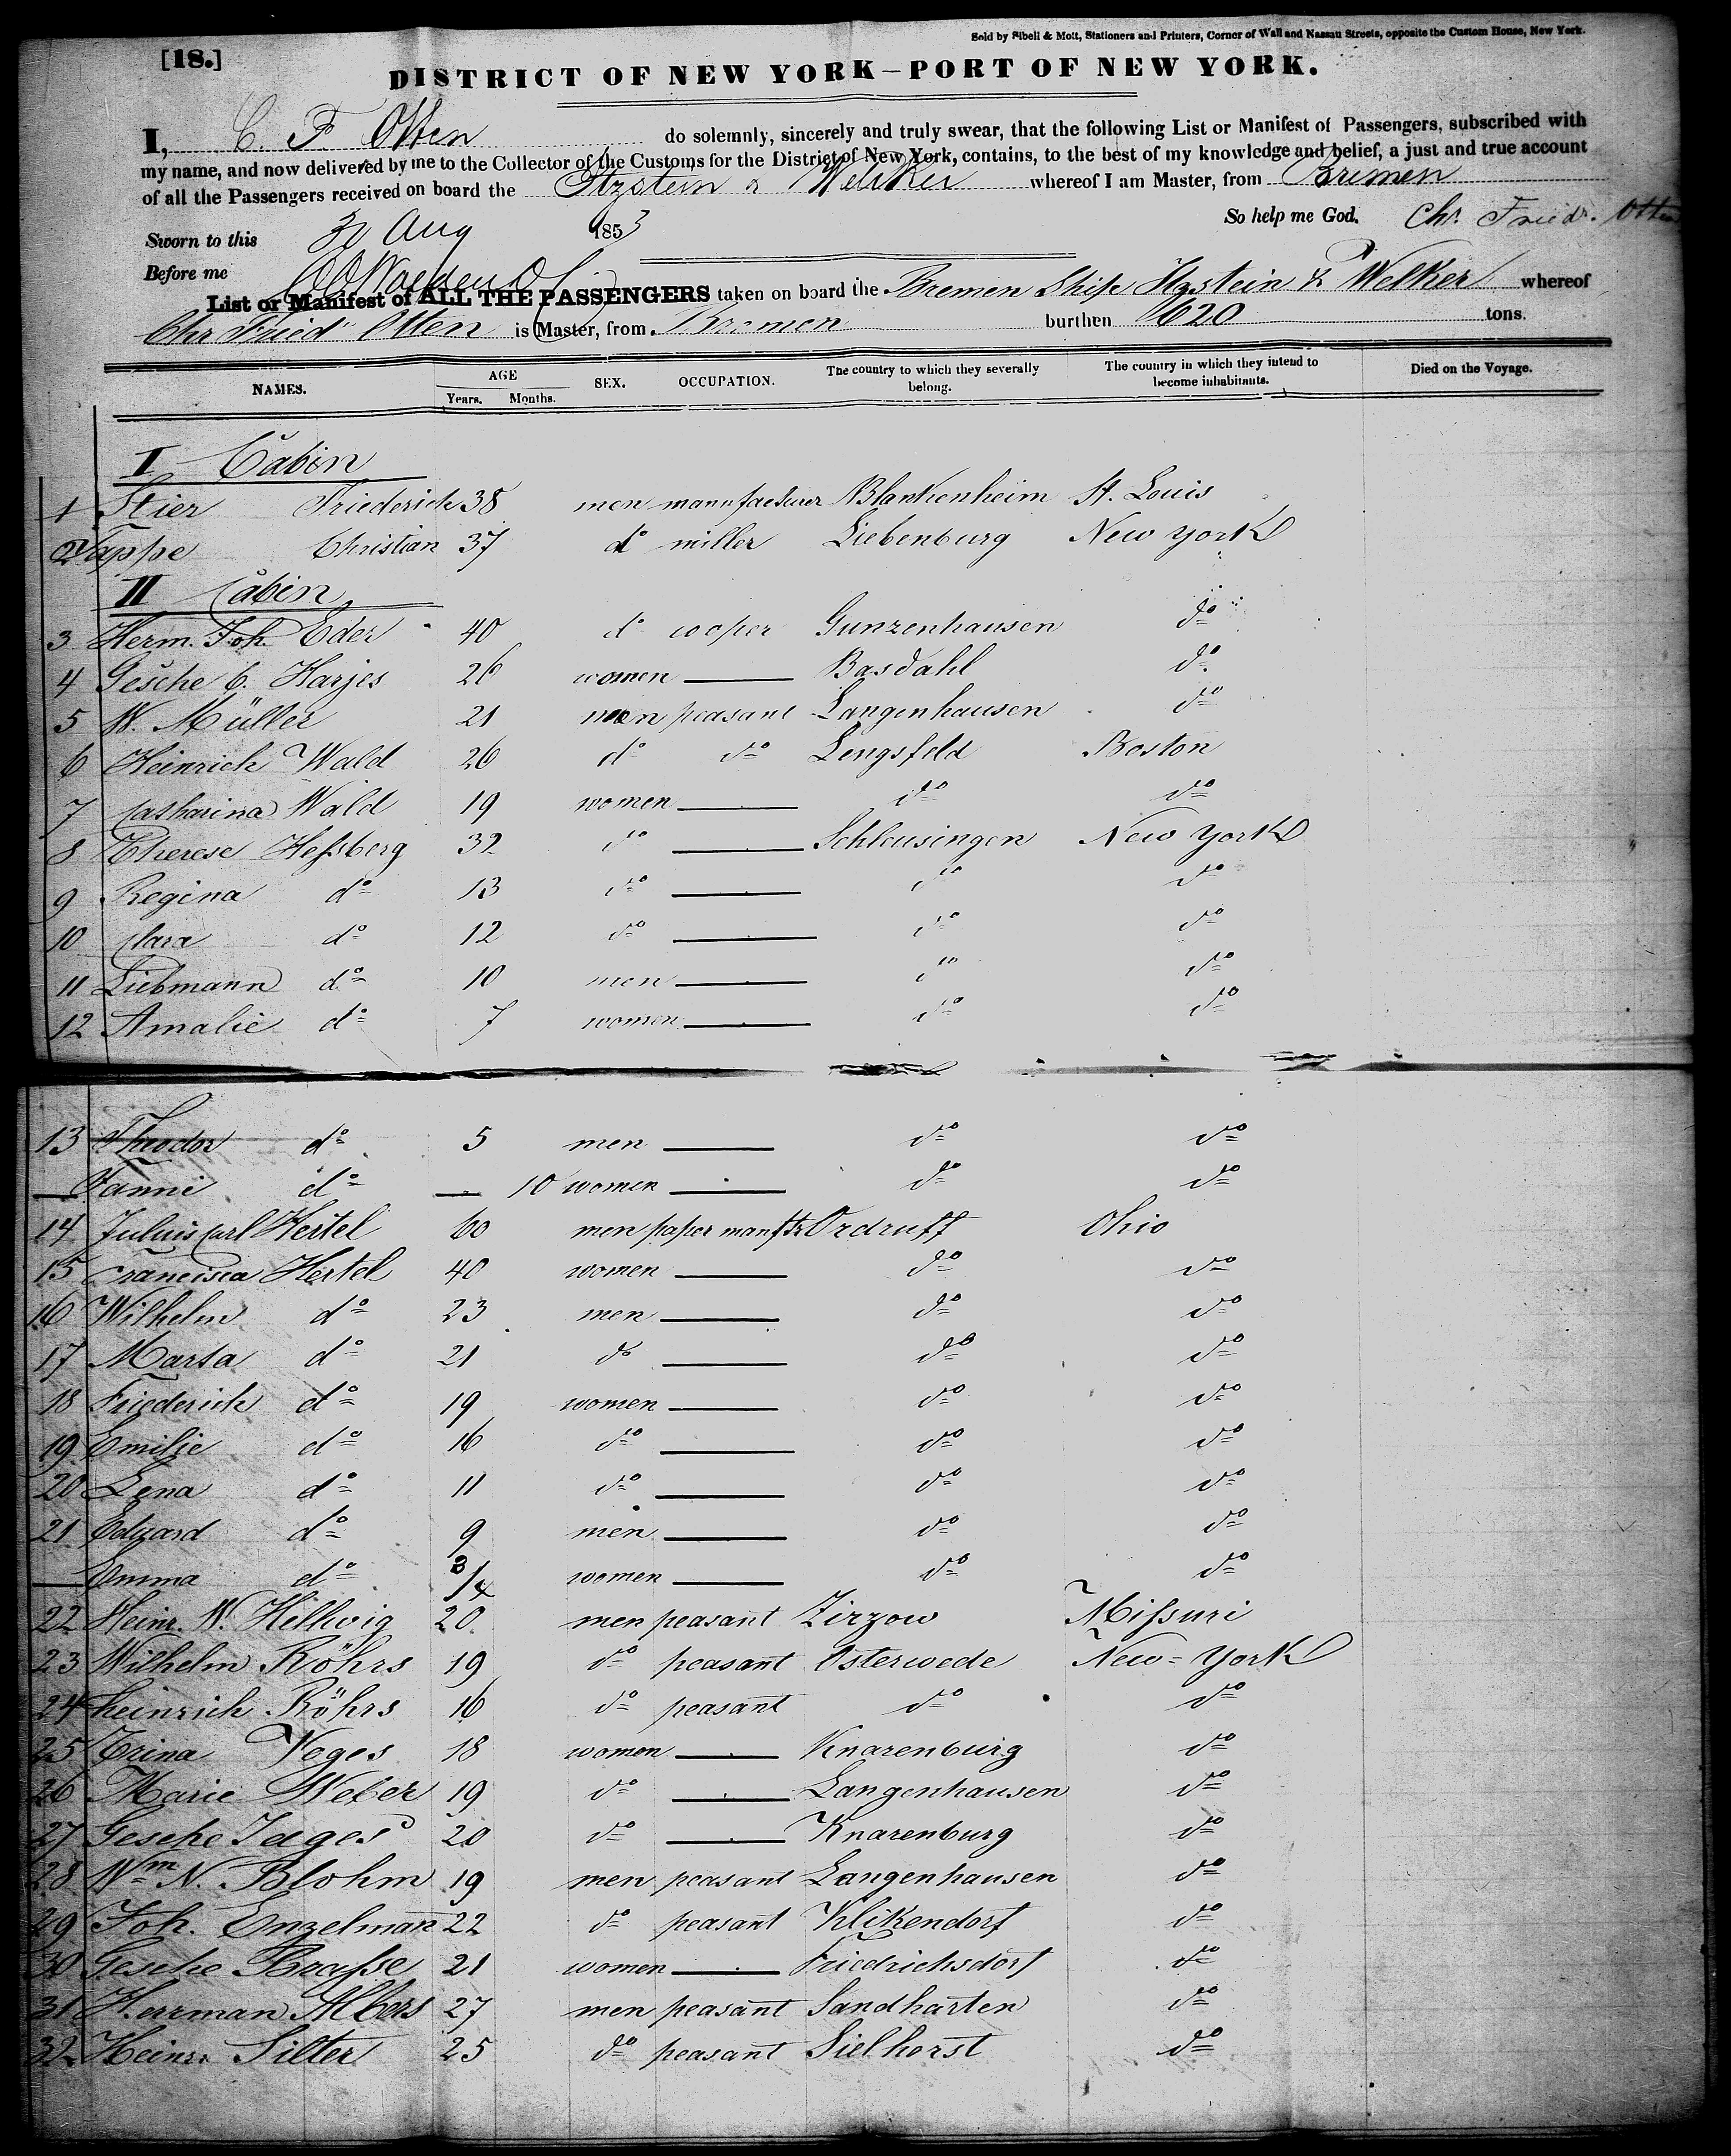 [18.]
Sold by Sibell & Mott, Stationers and Printers, Corner of Wall and Nassau Streets, opposite the Custom House, New York.
DISTRICT OF NEW YORK—PORT OF NEW YORK.
I, C. F. Otten do solemnly, sincerely and truly swear, that the following List or Manifest of Passengers, subscribed with
my name, and now delivered by me to the Collector of the Customs for the District of New York, contains, to the best of my knowledge and belief, a just and true account
of all the Passengers received on board the Itzstein & Welker whereof I am Master, from Bremen
So help me God. Chr. Friedr. Otten
Sworn to this 30 Aug 1853
Before me
List or Manifest of ALL THE PASSENGERS taken on board the Bremen Ship Itzstein & Welker whereof
Chr Fried Otten is Master, from Bremen burthen 620 tons.
NAMES. AGE Years. Months. SEX. OCCUPATION. The country to which they severally belong. The country in which they intend to become inhabitants. Died on the Voyage.
I Cabin
1 Stier Friederich 38 men mannfacturer Blankenheim St. Louis
2 Tappe Christian 37 do miller Liebenburg New York
II Cabin
3 Herm. Joh. Eder 40 do cooper Gunzenhausen do
4 Gesche C. Harjes 26 women Basdahl do
5 W. Müller 21 men peasant Langenhausen do
6 Heinrich Wald 26 do do Lengsfeld Boston
7 Catharina Wald 19 women do do
8 Therese Heſsberg 32 do Schleusingen New York
9 Regina do 13 do do do
10 Clara do 12 do do do
11 Liebmann do 10 men do do
12 Amalie do 7 women do do
13 Theodor do 5 men do do
— Fanni do — 10 women do do
14 Julius Carl Hertel 60 men paper manftr Ordruff Ohio
15 Francisca Hertel 40 women do do
16 Wilhelm do 23 men do do
17 Marta do 21 do do do
18 Friederich do 19 women do do
19 Emilje do 16 do do do
20 Lena do 11 do do do
21 Eduard do 9 men do do
— Emma do 3/4 women do do
22 Heinr. W. Hillwig 20 men peasant Zirzow Miſsuri
23 Wilhelm Röhrs 19 do peasant Osterwede New=York
24 Heinrich Röhrs 16 do peasant do do
25 Trina Veges 18 women Knarenburg do
26 Marie Weber 19 do Langenhausen do
27 Gesche Jages 20 do Knarenburg do
28 Wm N. Blohm 19 men peasant Langenhausen do
29 Joh. Enzelmañ 22 do peasant Klikendorf do
30 Gesche Braſse 21 women Friedrichsdorf do
31 Herrman Albers 27 men peasant Sandhatten do
32 Heinr. Silter 25 do peasant Sielhorst do